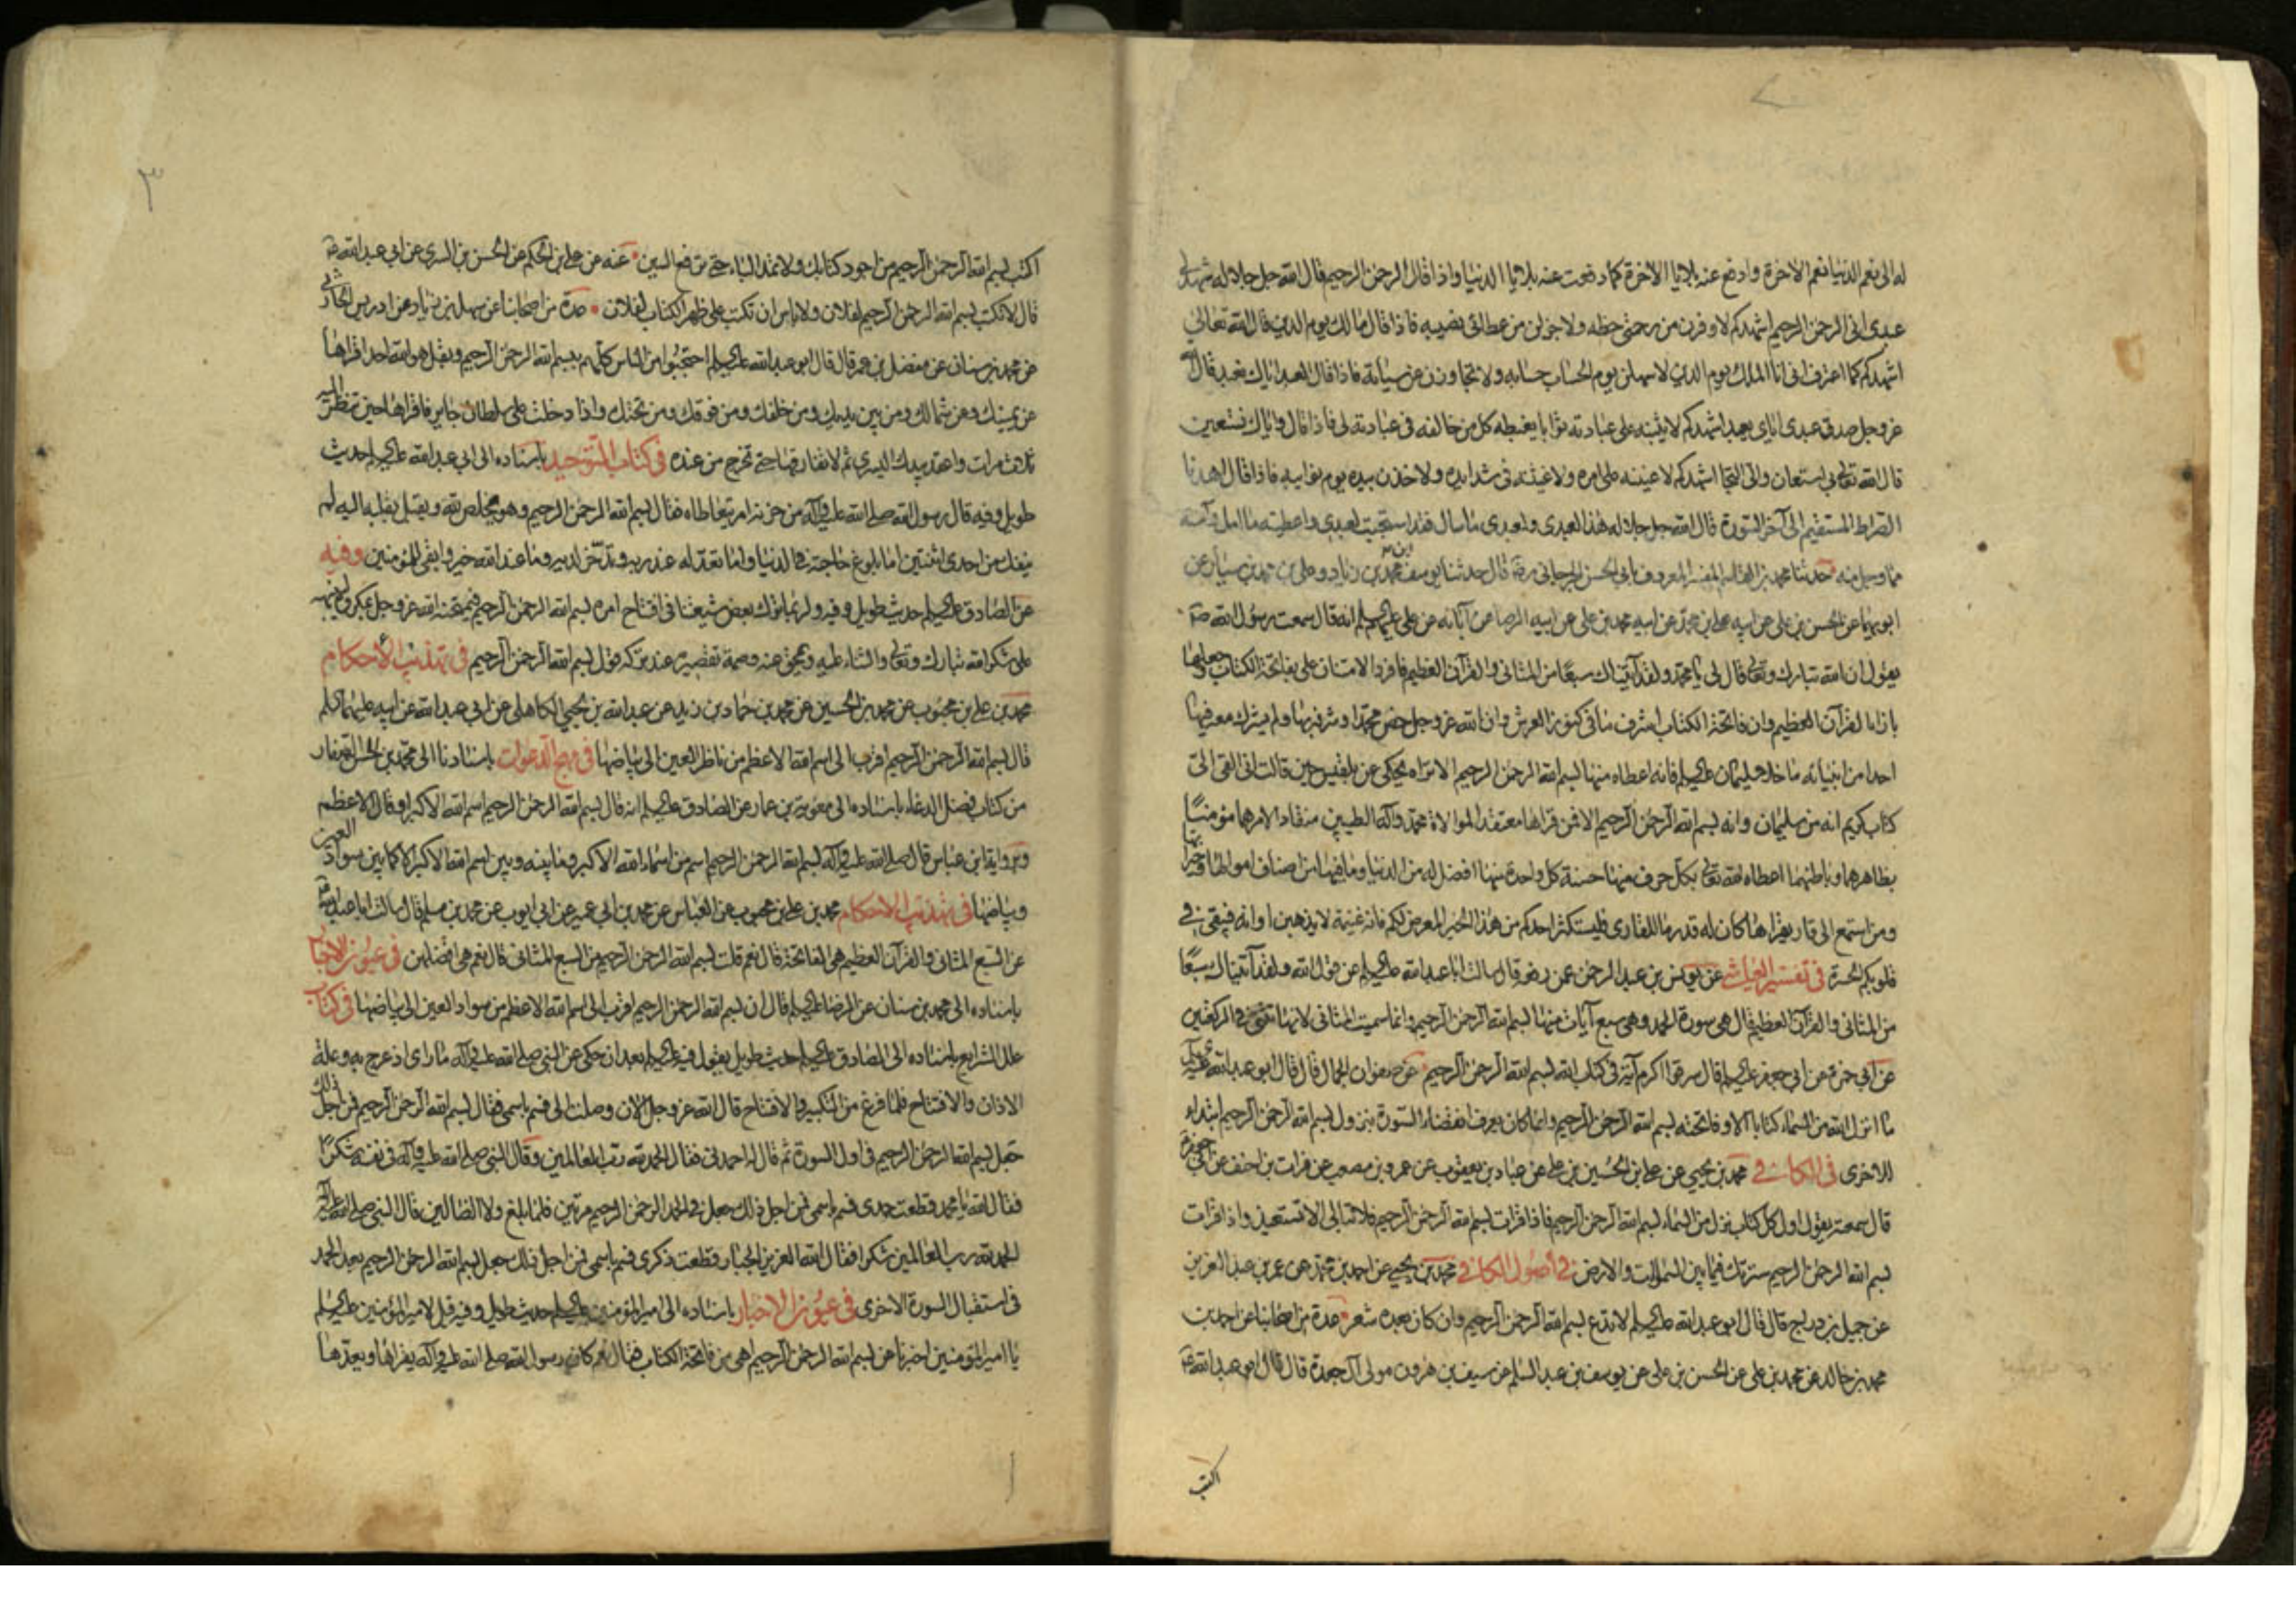 له الى نعم الدنيا نعم الاخرة وادفع عنه بلايا الاخرة كما دفعت عنه بلايا الدنيا واذا قال الرحمن الرحيم قال الله جل جلاله شهد لى
عبدى انى الرحمن الرحيم اشهدكم لاوفرن من رحمتى حظه ولاجزلن من عطائى نصيبه فاذا قال مالك يوم الدين قال الله تعالى
اشهدكم كما اعترف انى انا الملك يوم الدين لاسهلن يوم الحساب حسابه ولاتجاوزن عن سيئاته فاذا قال العبد اياك نعبد قال الله
عز وجل صدق عبدى اياى يعبد اشهدكم لاثيبنه على عبادته ثوابا يغبطه كل من خالفه فى عبادته لى فاذا قال واياك نستعين
قال الله تعالى بى استعان والى التجا اشهدكم لاعيننه على امره ولاغيثنه فى شدايده ولاخذن بيده يوم نوايبه فاذا قال اهدنا
الصراط المستقيم الى آخر السورة قال الله جل جلاله هذا لعبدى ولعبدى ما سال فقد استجبت لعبدى واعطيته ما امل وآمنته
مما وجل منه حدثنا محمد بن القاسم المفسر المعروف بابى الحسن الجرجانى رضه قال حدثنا يوسف بن محمد بن زياد وعلى بن محمد بن سيار عن
ابويهما عن الحسن بن على عن ابيه على بن محمد عن ابيه محمد بن على عن ابيه الرضا عن آبائه عن على عليهم السلم انه قال سمعت رسول الله ص
يقول ان الله تبارك وتعالى قال لى يا محمد ولقد آتيناك سبعا من المثانى والقرآن العظيم فافرد الامتنان على بفاتحة الكتاب وجعلها
بازاء القرآن العظيم وان فاتحة الكتاب اشرف ما فى كنوز العرش وان الله عز وجل خص محمدا وشرفه بها ولم يشرك معه فيها
احدا من انبيائه ما خلا سليمان عليه السلم فانه اعطاه منها بسم الله الرحمن الرحيم الا تراه يحكى عن بلقيس حين قالت انى القى الى
كتاب كريم انه من سليمان وانه بسم الله الرحمن الرحيم الا فمن قراها معتقدا لموالاة محمد وآله الطيبين منقادا لامرهما مؤمنا
بظاهرهما وباطنهما اعطاه الله تعالى بكل حرف منها حسنة كل واحدة منها افضل له من الدنيا وما فيها من اصناف اموالها وخيراتها
ومن استمع الى قارئ يقراها كان له قدر ما للقارى فليستكثر احدكم من هذا الخير المعرض لكم فانه غنيمة لا يذهبن اوانه فيبقى فى
قلوبكم الحسرة فى تفسير العياشى عن يونس بن عبد الرحمن عمن رفعه قال سالت ابا عبد الله عليه السلم عن قول الله ولقد آتيناك سبعا
من المثانى والقرآن العظيم قال هى سورة الحمد وهى سبع آيات منها بسم الله الرحمن الرحيم وانما سميت المثانى لانها تثنى فى الركعتين
عن ابى حمزة عن ابى جعفر عليه السلم قال سرقوا اكرم آية فى كتاب الله بسم الله الرحمن الرحيم عن صفوان الجمال قال قال ابو عبد الله عليه السلم
ما انزل الله من السماء كتابا الا وفاتحته بسم الله الرحمن الرحيم وانما كان يعرف انقضاء السورة بنزول بسم الله الرحمن الرحيم ابتداء
للاخرى فى الكافى محمد بن يحيى عن على بن الحسين بن على عن عباد بن يعقوب عن عمرو بن مصعب عن فرات بن احنف عن ابى جعفر
قال سمعته يقول اول كل كتاب نزل من السماء بسم الله الرحمن الرحيم فاذا قرات بسم الله الرحمن الرحيم فلا تبالى الا تستعيذ واذا قرات
بسم الله الرحمن الرحيم سترتك فيما بين السموات والارض فى اصول الكافى محمد بن يحيى عن احمد بن محمد عن عمر بن عبد العزيز
عن جميل بن دراج قال قال ابو عبد الله عليه السلم لا تدع بسم الله الرحمن الرحيم وان كان بعده شعر عدة من اصحابنا عن احمد بن
محمد بن خالد عن محمد بن على عن الحسن بن على عن يوسف بن عبد السلم عن سيف بن هرون مولى آل جعدة قال قال ابو عبد الله ع
اكتب
٣
اكتب بسم الله الرحمن الرحيم من اجود كتابك ولا تمد الباء حتى ترفع السين عنه عن على بن الحكم عن الحسن بن السرى عن ابى عبد الله ع
قال لا تكتب بسم الله الرحمن الرحيم لفلان ولا باس ان تكتب على ظهر الكتاب لفلان عدة من اصحابنا عن سهل بن زياد عن ادريس الحارثى
عن محمد بن سنان عن مفضل بن عمر قال قال ابو عبد الله عليه السلم احتجبوا من الناس كلهم ببسم الله الرحمن الرحيم وبقل هو الله احد اقراها
عن يمينك وعن شمالك ومن بين يديك ومن خلفك ومن فوقك ومن تحتك واذا دخلت على سلطان جاير فاقراها حين تنظر اليه
ثلث مرات واعقد بيدك اليسرى ثم لا تفارقها حتى تخرج من عنده فى كتاب التوحيد باسناده الى ابى عبد الله عليه السلم حديث
طويل وفيه قال رسول الله صلى الله عليه وآله من حزنه امر يتعاطاه فقال بسم الله الرحمن الرحيم وهو يخلص لله ويقبل بقلبه اليه لم
ينفك من احدى اثنتين اما بلوغ حاجته فى الدنيا واما تعد له عند ربه وتدخر لديه وما عند الله خير وابقى للمؤمنين وفيه
عن الصادق عليه السلم حديث طويل وفيه ولربما ترك بعض شيعتنا فى افتتاح امره بسم الله الرحمن الرحيم فيمتحنه الله عز وجل بمكروه لينبهه
على شكر الله تبارك وتعالى والثناء عليه ويمحق عنه وصمة تقصيره عند تركه قول بسم الله الرحمن الرحيم فى تهذيب الاحكام
محمد بن على بن محبوب عن محمد بن الحسين عن محمد بن حماد بن زيد عن عبد الله بن يحيى الكاهلى عن ابى عبد الله عن ابيه عليهما السلم
قال بسم الله الرحمن الرحيم اقرب الى اسم الله الاعظم من ناظر العين الى بياضها فى مهج الدعوات باسنادنا الى محمد بن الحسن الصفار
من كتاب فضل الدعاء باسناده الى معوية بن عمار عن الصادق عليه السلم انه قال بسم الله الرحمن الرحيم اسم الله الاكبر او قال الاعظم
وبرواية ابن عباس قال صلى الله عليه وآله بسم الله الرحمن الرحيم اسم من اسماء الله الاكبر وما بينه وبين اسم الله الاكبر الا كما بين سواد العين
وبياضها فى تهذيب الاحكام محمد بن على بن محبوب عن العباس عن محمد بن ابى عمير عن ابى ايوب عن محمد بن مسلم قال سالت ابا عبد الله ع
عن السبع المثانى والقرآن العظيم هى الفاتحة قال نعم قلت بسم الله الرحمن الرحيم من السبع المثانى قال نعم هى افضلهن فى عيون الاخبار
باسناده الى محمد بن سنان عن الرضا عليه السلم قال ان بسم الله الرحمن الرحيم اقرب الى اسم الله الاعظم من سواد العين الى بياضها فى كتاب
علل الشرايع باسناده الى الصادق عليه السلم حديث طويل يقول فيه عليه السلم بعد ان حكى عن النبى صلى الله عليه وآله ما راى اذ عرج به وعلة
الاذان والافتتاح فلما فرغ من التكبير والافتتاح قال الله عز وجل الان وصلت الى فسم باسمى فقال بسم الله الرحمن الرحيم فمن اجل ذلك
جعل بسم الله الرحمن الرحيم فى اول السورة ثم قال له احمدنى فقال الحمد لله رب العالمين وقال النبى صلى الله عليه وآله فى نفسه شكرا
فقال الله يا محمد قطعت حمدى فسم باسمى فمن اجل ذلك جعل فى الحمد الرحمن الرحيم مرتين فلما بلغ ولا الضالين قال النبى صلى الله عليه وآله
الحمد لله رب العالمين شكرا فقال الله العزيز الجبار قطعت ذكرى فسم باسمى فمن اجل ذلك جعل بسم الله الرحمن الرحيم بعد الحمد
فى استقبال السورة الاخرى فى عيون الاخبار باسناده الى امير المؤمنين عليه السلم حديث طويل وفيه قيل لامير المؤمنين عليه السلم
يا امير المؤمنين اخبرنا عن بسم الله الرحمن الرحيم اهى من فاتحة الكتاب فقال نعم كان رسول الله صلى الله عليه وآله يقراها ويعدها